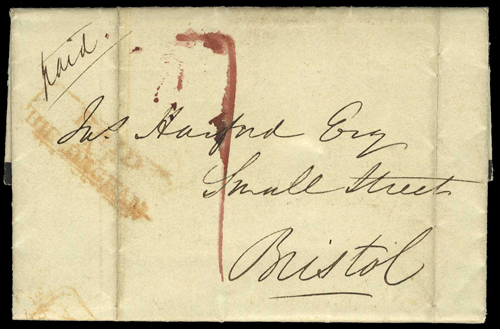 Paid.
Jas. Harford Esq
Small Street
Bristol